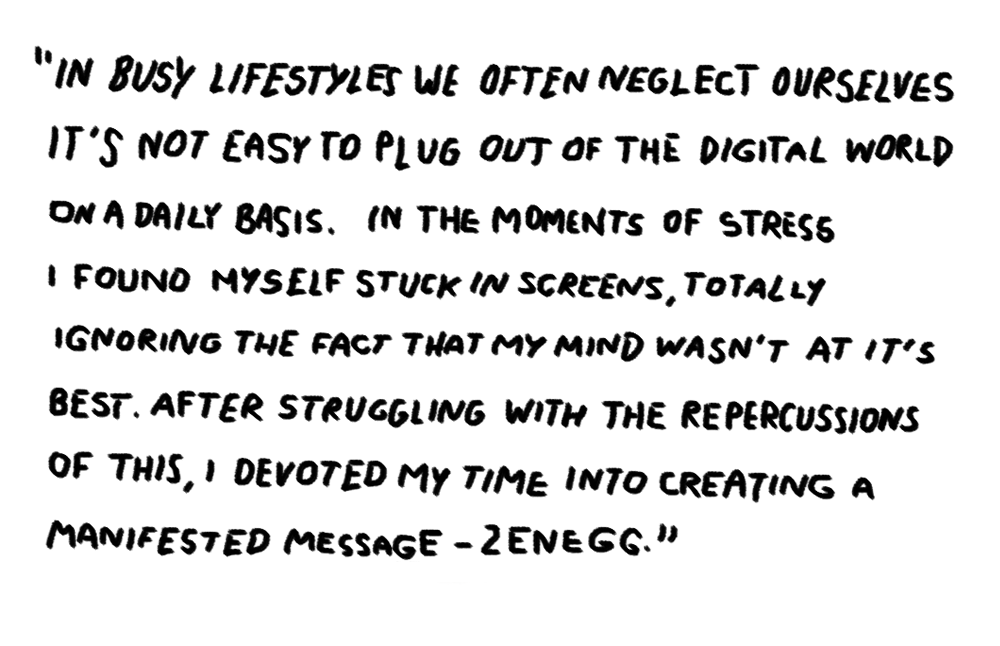 "IN BUSY LIFESTYLES WE OFTEN NEGLECT OURSELVES
IT'S NOT EASY TO PLUG OUT OF THE DIGITAL WORLD
ON A DAILY BASIS. IN THE MOMENTS OF STRESS
I FOUND MYSELF STUCK IN SCREENS, TOTALLY
IGNORING THE FACT THAT MY MIND WASN'T AT IT'S
BEST. AFTER STRUGGLING WITH THE REPERCUSSIONS
OF THIS, I DEVOTED MY TIME INTO CREATING A
MANIFESTED MESSAGE - ZENEGG."